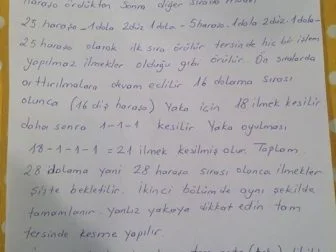 haroşo ördükten sonra diğer sırada model
25 haraşo - 1 dola 2 düz 1 dola - 5 haraşo - 1 dola 2 düz 1 dola -
25 haraşo olarak ilk sıra örülür tersinde hiç bir işlem
yapılmaz ilmekler olduğu gibi örülür. Bu sıralarda
arttırılmalara devam edilir 16 dolama sırası
olunca (16 diş haraşo) Yaka için 18 ilmek kesilir
daha sonra 1-1-1 kesilir Yaka oyulması
18-1-1-1 = 21 ilmek kesilmiş olur. Toplam
28 dolama yani 28 haraşo sırası olunca ilmekler
şişte bekletilir. İkinci bölümde aynı şekilde
tamamlanır. yanlız yakaya dikkat edin tam
tersinde kesme yapılır.